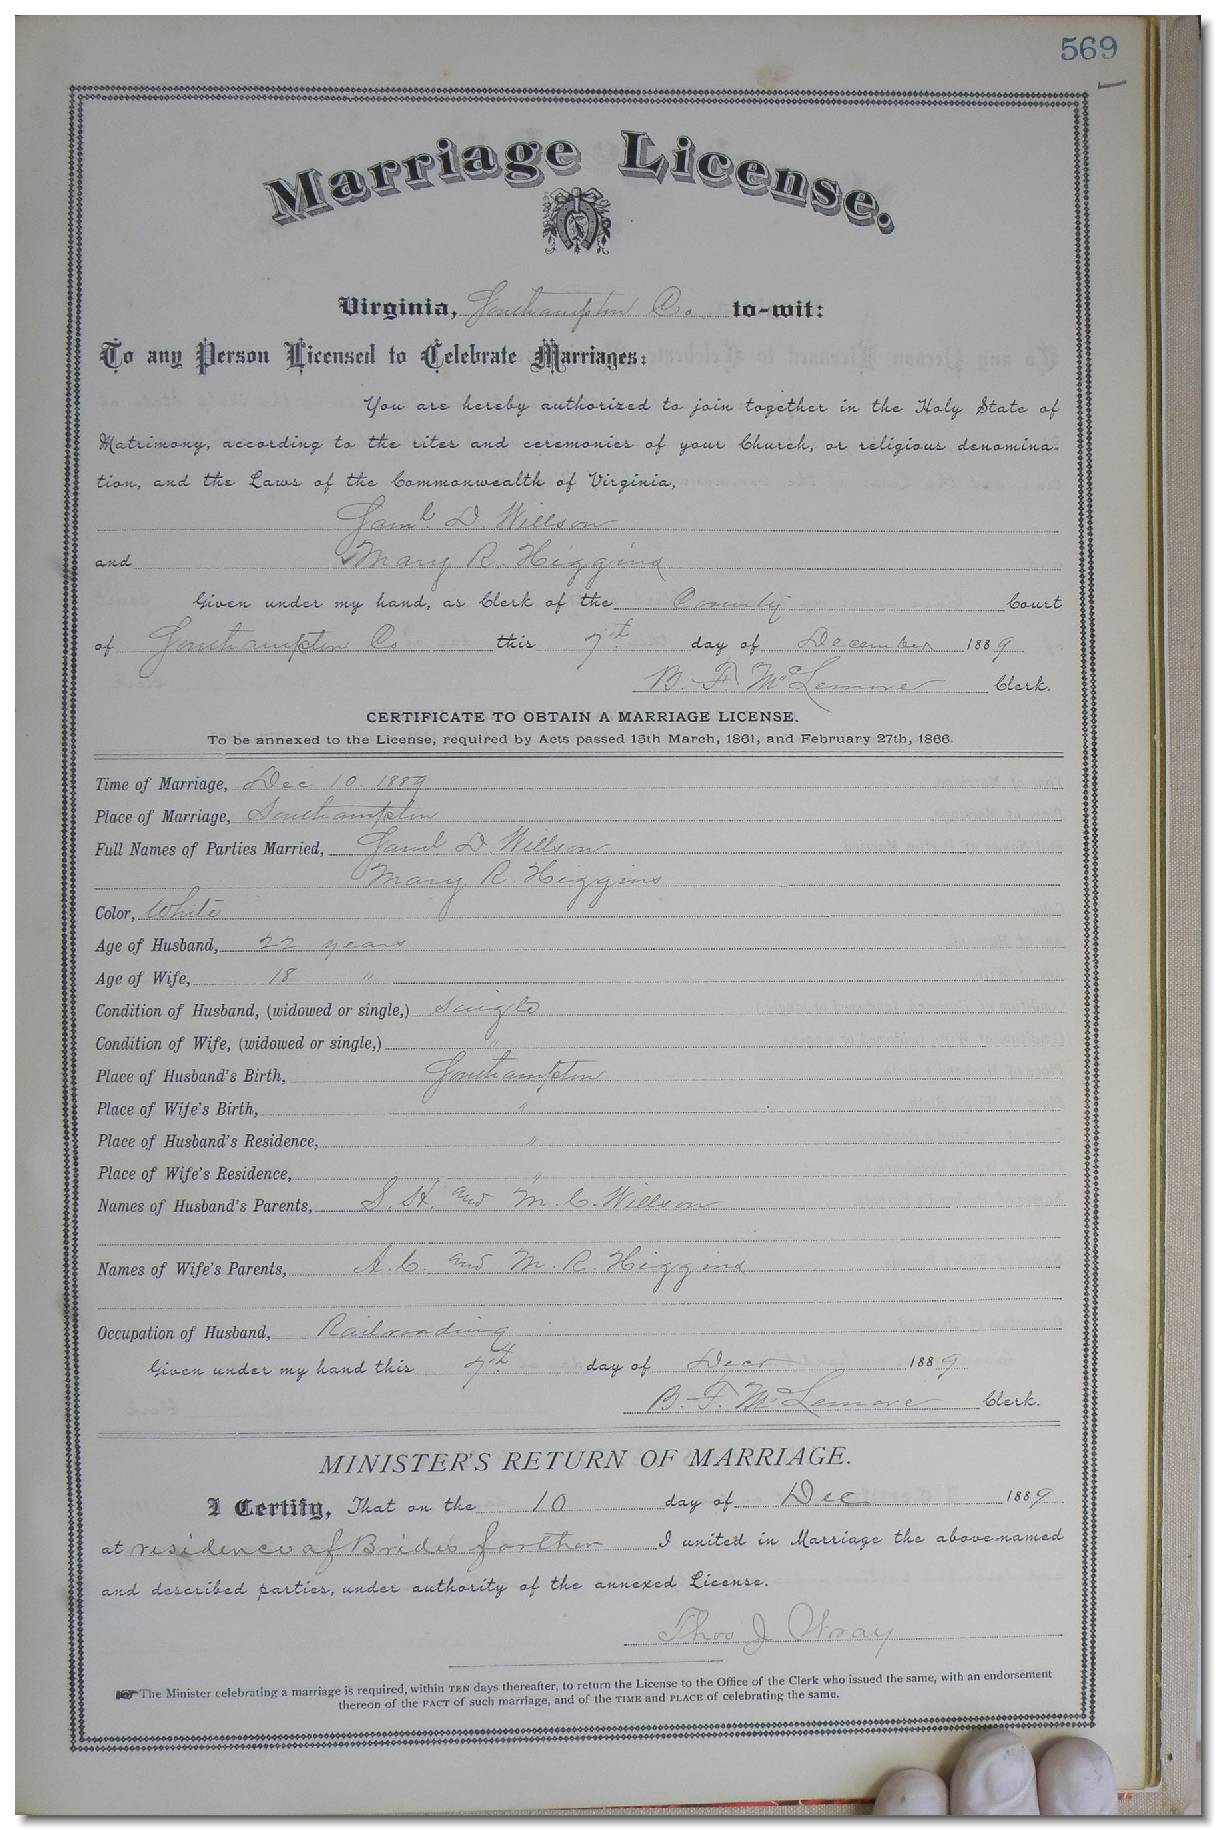 569
Marriage License.
Virginia, Southampton Co to-wit:
To any Person Licensed to Celebrate Marriages:
You are hereby authorized to join together in the Holy State of
Matrimony, according to the rites and ceremonies of your Church, or religious denomina-
tion, and the Laws of the Commonwealth of Virginia,
Saml. D. Willson
and Mary R. Higgins
Given under my hand, as Clerk of the County Court
of Southampton Co this 7th day of December 1889
B. F. McLemore Clerk.
CERTIFICATE TO OBTAIN A MARRIAGE LICENSE.
To be annexed to the License, required by Acts passed 15th March, 1861, and February 27th, 1866.
Time of Marriage, Dec 10. 1889
Place of Marriage, Southampton
Full Names of Parties Married, Saml D Willson
Mary R. Higgins
Color, White
Age of Husband, 22 years
Age of Wife, 18 "
Condition of Husband, (widowed or single,) Single
Condition of Wife, (widowed or single,) "
Place of Husband's Birth, Southampton
Place of Wife's Birth, "
Place of Husband's Residence, "
Place of Wife's Residence, "
Names of Husband's Parents, S. H. and M. C. Willson
Names of Wife's Parents, A. C. and M. R. Higgins
Occupation of Husband, Railroading
Given under my hand this 7th day of Decr 1889
B. F. McLemore Clerk.
MINISTER'S RETURN OF MARRIAGE.
I Certify, That on the 10 day of Dec 1889
at residence of Brides farther I united in Marriage the above-named
and described parties, under authority of the annexed License.
Thos J Wray
The Minister celebrating a marriage is required, within TEN days thereafter, to return the License to the Office of the Clerk who issued the same, with an endorsement
thereon of the FACT of such marriage, and of the TIME and PLACE of celebrating the same.